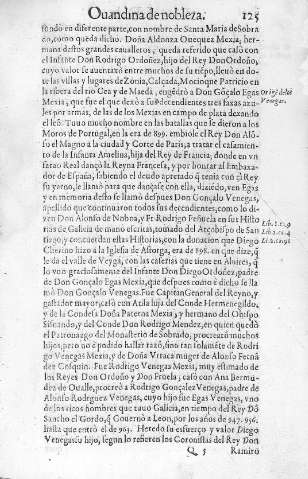 Ouandina de nobleza. 125
fondo en diferente parte, con nombre de Santa Maria de Sobra
do, como queda dicho. Doña Aldonza Onequez Mexia, her-
mana destos grandes caualleros, queda referido que casò con
el Infante Don Rodrigo Ordoñez, hijo del Rey Don Ordoño,
cuyo valor se auentaxò entre muchos de su tiẽpo, lleuò en do-
te las villas y lugares de Zoria, Calzada, Mecio que Patricio en
la ribera del rio Cea y de Maeda, engẽdrò a Don Gõçalo Egas
Mexia, que fue el que dexò a sus decendientes tres faxas azu-
les por armas, de las de los Mexias en campo de plata dexando
el leõ. Tuuo mucho nombre en las batallas que se dieron a los
Moros de Portugal, en la era de 899. embiole el Rey Don Alõ-
so el Magno a la ciudad y Corte de Paris, a tratar el casamien-
to de la Infanta Amelina, hija del Rey de Francia, donde en vn
sarao Real dançò la Reyna Francesa, y por honrar al Embaxa-
dor de España, sabiendo el deudo apretado q̃ tenia con el Rey
su yerno, le llamò para que dançase con ella, diziẽdo, ven Egas
y en memoria desto se llamò despues Don Gonçalo Venegas,
apellido que continuaron todos sus decendientes, como lo di-
zen Don Alonso de Noboa, y Fr. Rodrigo Peñuela en sus Histo
rias de Galicia de mano escritas, tomado del Arçobispo de San
tiago, y concuerdan estas Historias, con la donacion que Diego
Cherino hizo a la Iglesia de Astorga, era de 898. en que dize, q̃
le da el valle de Veyga, con las caserias que tiene en Abares, q̃
lo von graciosamente del Infante Don Diego Ordoñez, padre
de Don Gonçalo Egas Mexia, que despues como è dicho se lla
mò Don Gonçalo Venegas. Fue Capitan General del Reyno, y
gastador mayor, casò con Atila hija del Conde Hermenegildo,
y de la Condesa Doña Paterna Mexia, y hermano del Obispo
Sisnando, y del Conde Don Rodrigo Mendez, en quien quedò
el Patronazgo del Monasterio de Sobrado, procrearõ muchos
hijos, pero no è podido hallar razõ, sino tan solamẽte de Rodri
go Venegas Mexia, y de Doña Vrraca muger de Alonso Fernã
dez
Fue Rodrigo Venegas Mexia, muy estimado de
los Reyes Don Ordoño y Don Fruela; casò con Ana Bermu-
dez de Oualle, procreò a Rodrigo Gonçalez Venegas, padre de
Alonso Rodriguez Venegas, cuyo hijo fue Egas Venegas, vno
de los ricos hombres que tauo Galicia, en tiempo del Rey Dõ
Sancho el Gordo, q̃ Gouernò a Leon, por los años de 947. 956.
hasta que entrò el de 963. Heredò su esfuerço y valor Diego
Venegas su hijo, segun lo refieren los Coronistas del Rey Don
Q 5 Ramiro
Venegas.